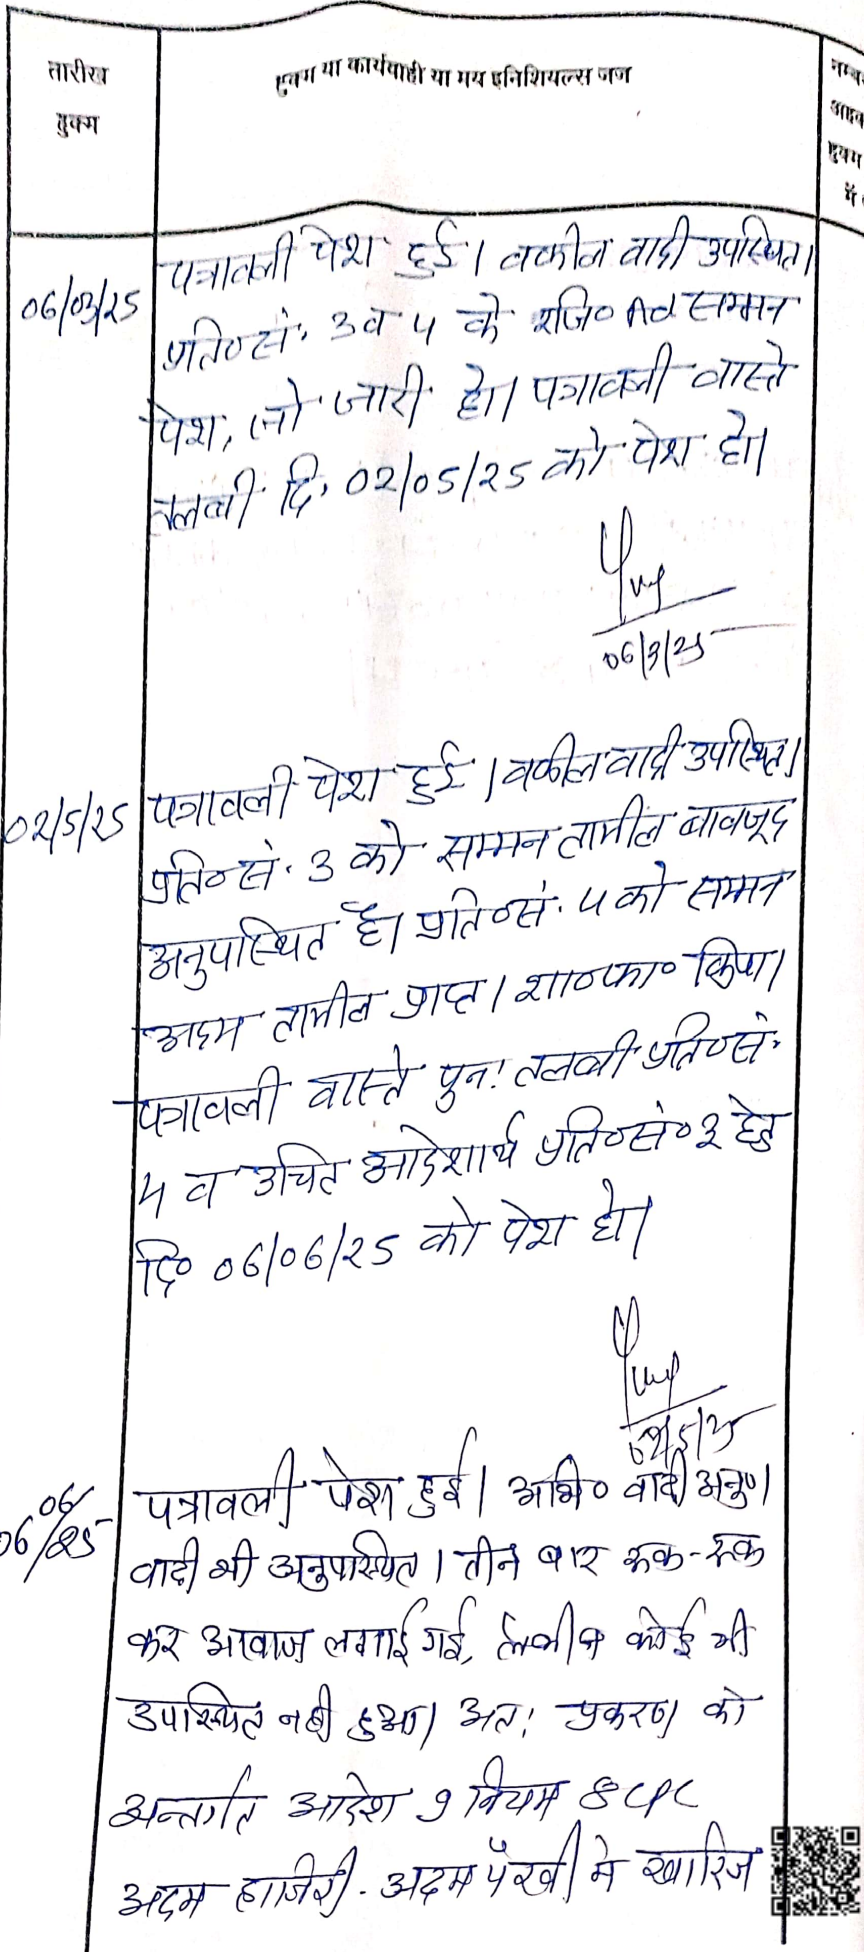 तारीख
हुक्म
हुक्म या कार्यवाही या मय इनिशियल्स जज
नम्ब
हुक्म
में
06/03/25
पत्रावली पेश हुई। वकील वादी उपस्थित।
प्रति०सं. 3 व 4 के रजि० AD सम्मन
पेश, जो जारी हो। पत्रावली वास्ते
तलबी दि. 02/05/25 को पेश हो।
06/3/25
02/5/25
पत्रावली पेश हुई। वकील वादी उपस्थित।
प्रति०सं. 3 को सम्मन तामील बावजूद
अनुपस्थित है। प्रति०सं. 4 को सम्मन
अदम तामील प्राप्त। शा०फा० किया।
पत्रावली वास्ते पुनः तलबी प्रति०सं.
4 व उचित आदेशार्थ प्रति०सं० 3 हेतु
दि० 06/06/25 को पेश हो।
02/5/25
06/06/25
पत्रावली पेश हुई। अभि० वादी अनु०।
वादी भी अनुपस्थित। तीन बार रूक-रूक
कर आवाज लगाई गई, लेकीन कोई भी
उपस्थित नही हुआ। अतः प्रकरण को
अन्तर्गत आदेश 9 नियम 8 CPC
अदम हाजिरी. अदम पैरवी में खारिज